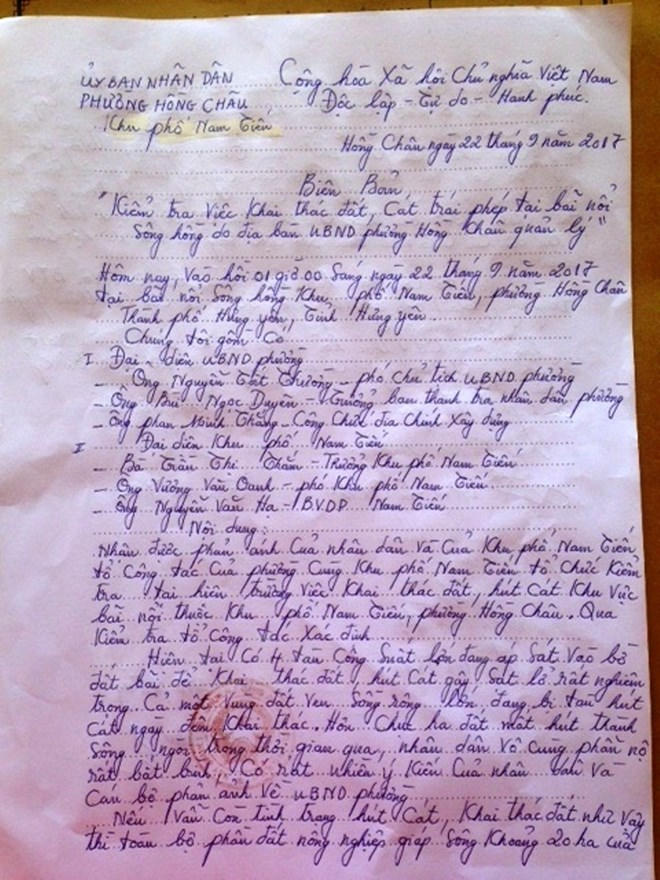 ỦY BAN NHÂN DÂN Cộng hòa Xã hội Chủ nghĩa Việt Nam
PHƯỜNG HỒNG CHÂU Độc lập - Tự do - Hạnh phúc.
Khu phố Nam Tiến
Hồng Châu ngày 22 tháng 9 năm 2017
Biên Bản
"Kiểm tra Việc Khai thác đất, Cát trái phép tại bãi nổi
Sông hồng do địa bàn UBND phường Hồng Châu quản lý"
Hôm nay, Vào hồi 01 giờ 00 Sáng ngày 22 tháng 9 năm 2017
tại bãi nổi Sông hồng Khu phố Nam Tiến, phường Hồng Châu
Thành phố Hưng yên, Tỉnh Hưng yên
Chúng tôi gồm Có
I Đại diện UBND phường
- Ông Nguyễn Tất Trường - phó Chủ tịch UBND phường
- Ông Bùi Ngọc Duyên - Trưởng ban thanh tra nhân dân phường
- Ông phan Minh Thắng - Công Chức địa Chính Xây dựng
II Đại diện Khu phố Nam Tiến
- Bà Trần Thị Thắm - Trưởng Khu phố Nam Tiến
- Ông Vương Văn Oanh - phó Khu phố Nam Tiến
- Ông Nguyễn Văn Hà - BVDP Nam Tiến
Nội dung:
Nhận được phản ánh Của nhân dân Và Của Khu phố Nam Tiến
tổ Công tác Của phường Cùng Khu phố Nam Tiến tổ Chức Kiểm
tra tại hiện trường Việc Khai thác đất, hút Cát Khu Vực
bãi nổi thuộc Khu phố Nam Tiến, phường Hồng Châu. Qua
Kiểm tra tổ Công tác Xác định
Hiện tại Có 4 tàu Công Suất lớn đang áp Sát Vào bờ
đất bãi để Khai thác đất, hút Cát gây Sạt lở rất nghiêm
trọng Cả một Vùng đất Ven Sông rộng lớn, đang bị tàu hút
Cát ngày đêm Khai thác. Hơn Chục ha đất mất hút thành
Sông ngòi trong thời gian qua, nhân dân Vô Cùng phẫn nộ
rất bất bình, Có rất nhiều ý Kiến Của nhân dân Và
Cán bộ phản ánh Về UBND phường
Nếu Vẫn Còn tình trạng hút Cát, Khai thác đất như Vậy
thì toàn bộ phần đất nông nghiệp giáp Sông Khoảng 20 ha của